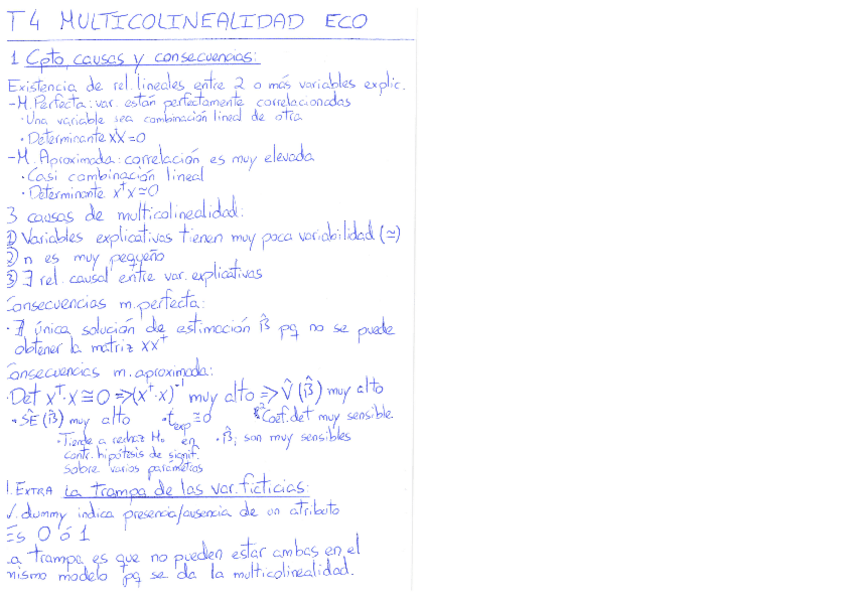 T4 MULTICOLINEALIDAD ECO
1 Cpto, causas y consecuencias:
Existencia de rel. lineales entre 2 o más variables explic.
-M. Perfecta: var. están perfectamente correlacionadas
· Una variable sea combinación lineal de otra
· Determinante X'X=0
-M. Aproximada: correlación es muy elevada
· Casi combinación lineal
· Determinante xᵀx≃0
3 causas de multicolinealidad:
1) Variables explicativas tienen muy poca variabilidad (≃)
2) n es muy pequeño
3) ∃ rel. causal entre var. explicativas
Consecuencias m. perfecta:
· ∄ única solución de estimación β̂ pq no se puede
obtener la matriz XXᵀ
Consecuencias m. aproximada:
· Det xᵀ·x ≅ 0 => (xᵀ·x)⁻¹ muy alto => V̂(β̂) muy alto
· ŜE(β̂) muy alto · t_exp ≅ 0 Coef. det muy sensible
· Tiende a rechaz H₀ en · β̂ⱼ son muy sensibles
contr. hipótesis de signif.
sobre varios parámetros
1. EXTRA La trampa de las var. ficticias:
V. dummy indica presencia/ausencia de un atributo
Es 0 ó 1
La trampa es que no pueden estar ambas en el
mismo modelo pq se da la multicolinealidad.